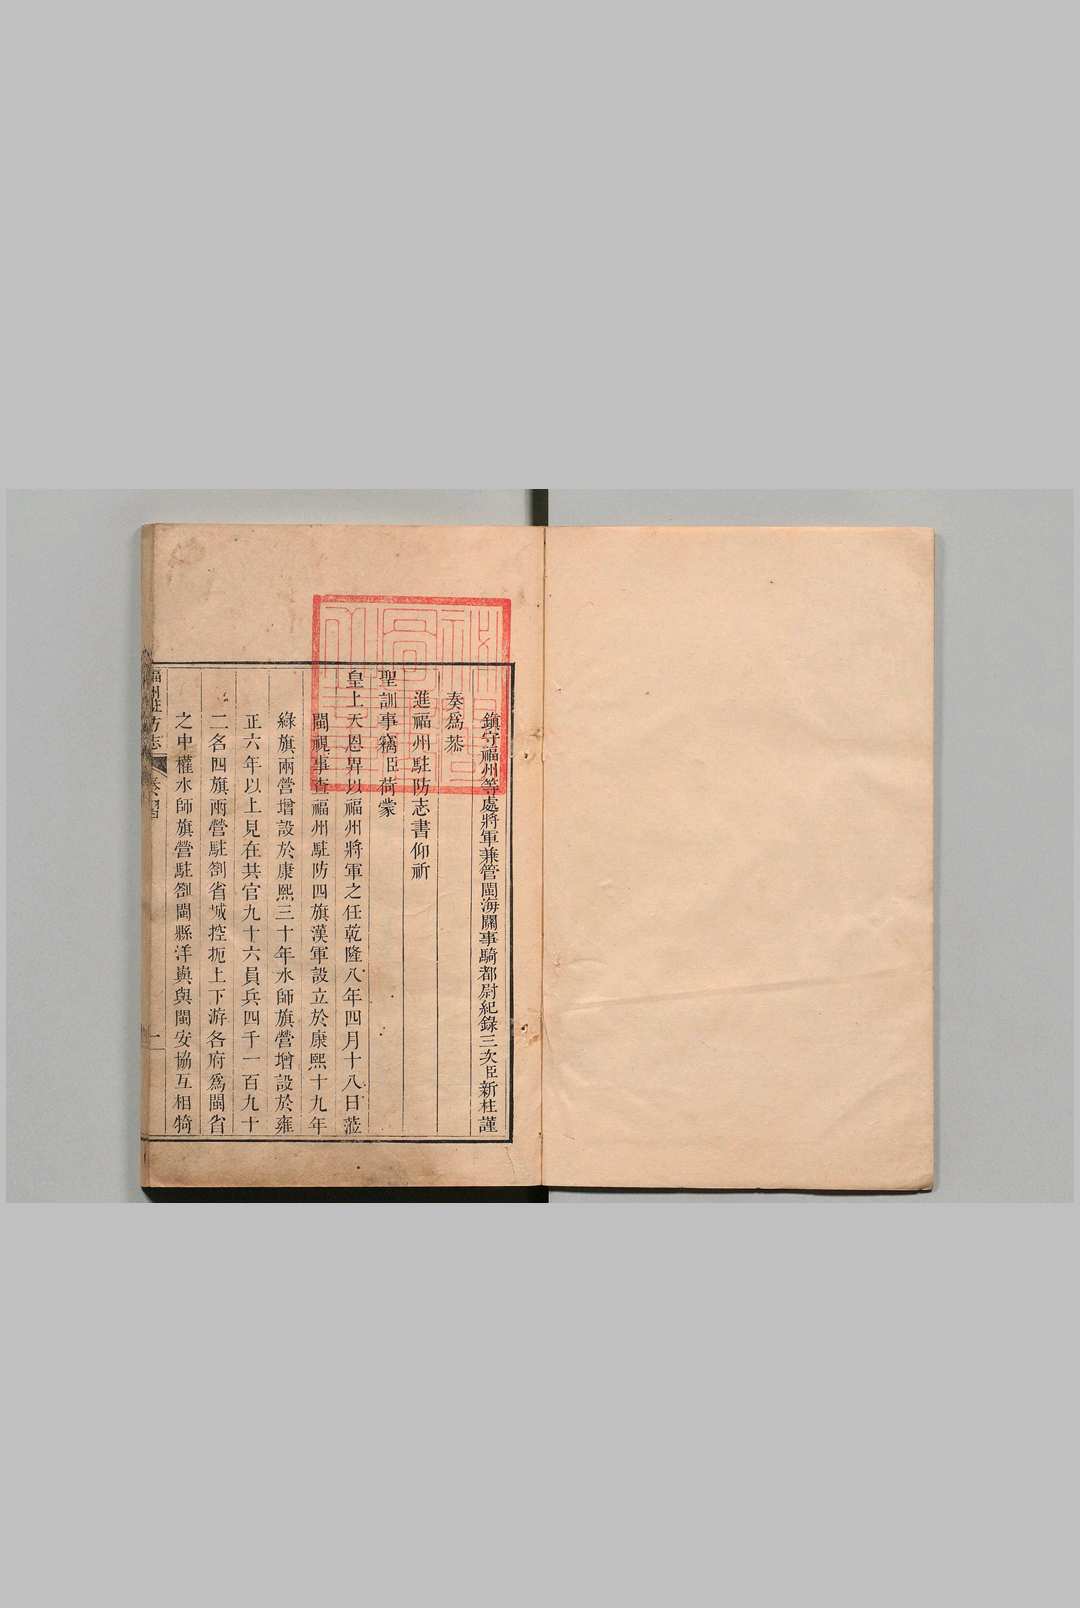 鎮守福州等處將軍兼管閩海關事騎都尉紀錄三次臣新柱謹
奏爲恭
進福州駐防志書仰祈
聖訓事竊臣荷蒙
皇上天恩畀以福州將軍之任乾隆八年四月十八日蒞
閩視事查福州駐防四旗漢軍設立於康熙十九年
綠旗兩營增設於康熙三十年水師旗營增設於雍
正六年以上見在共官九十六員兵四千一百九十
二名四旗兩營駐劄省城控扼上下游各府爲閩省
之中權水師旗營駐劄閩縣洋嶼與閩安協互相犄
福州駐防志
一